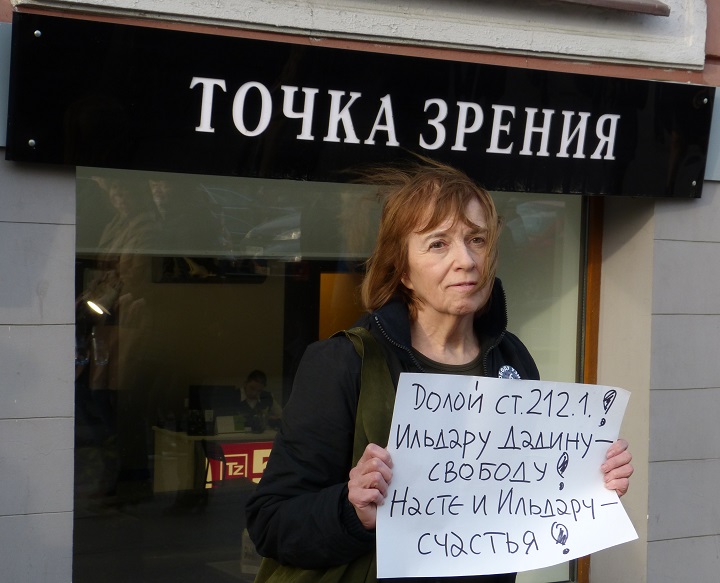 ТОЧКА ЗРЕНИЯ
Долой ст.212.1.!
Ильдару Дадину –
свободу!
Насте и Ильдару –
счастья!
Tz